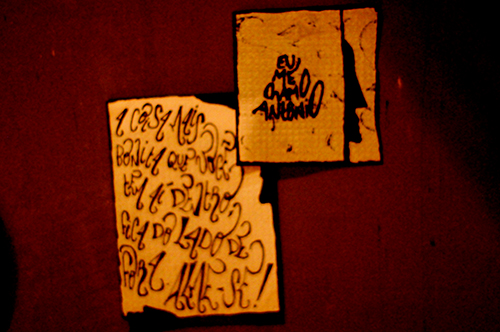 EU
ME
CHAMO
ANTÔNIO
A CASA MAIS
BONITA QUE VOCÊ
TEM AÍ DENTRO,
FICA DO LADO DE
FORA.